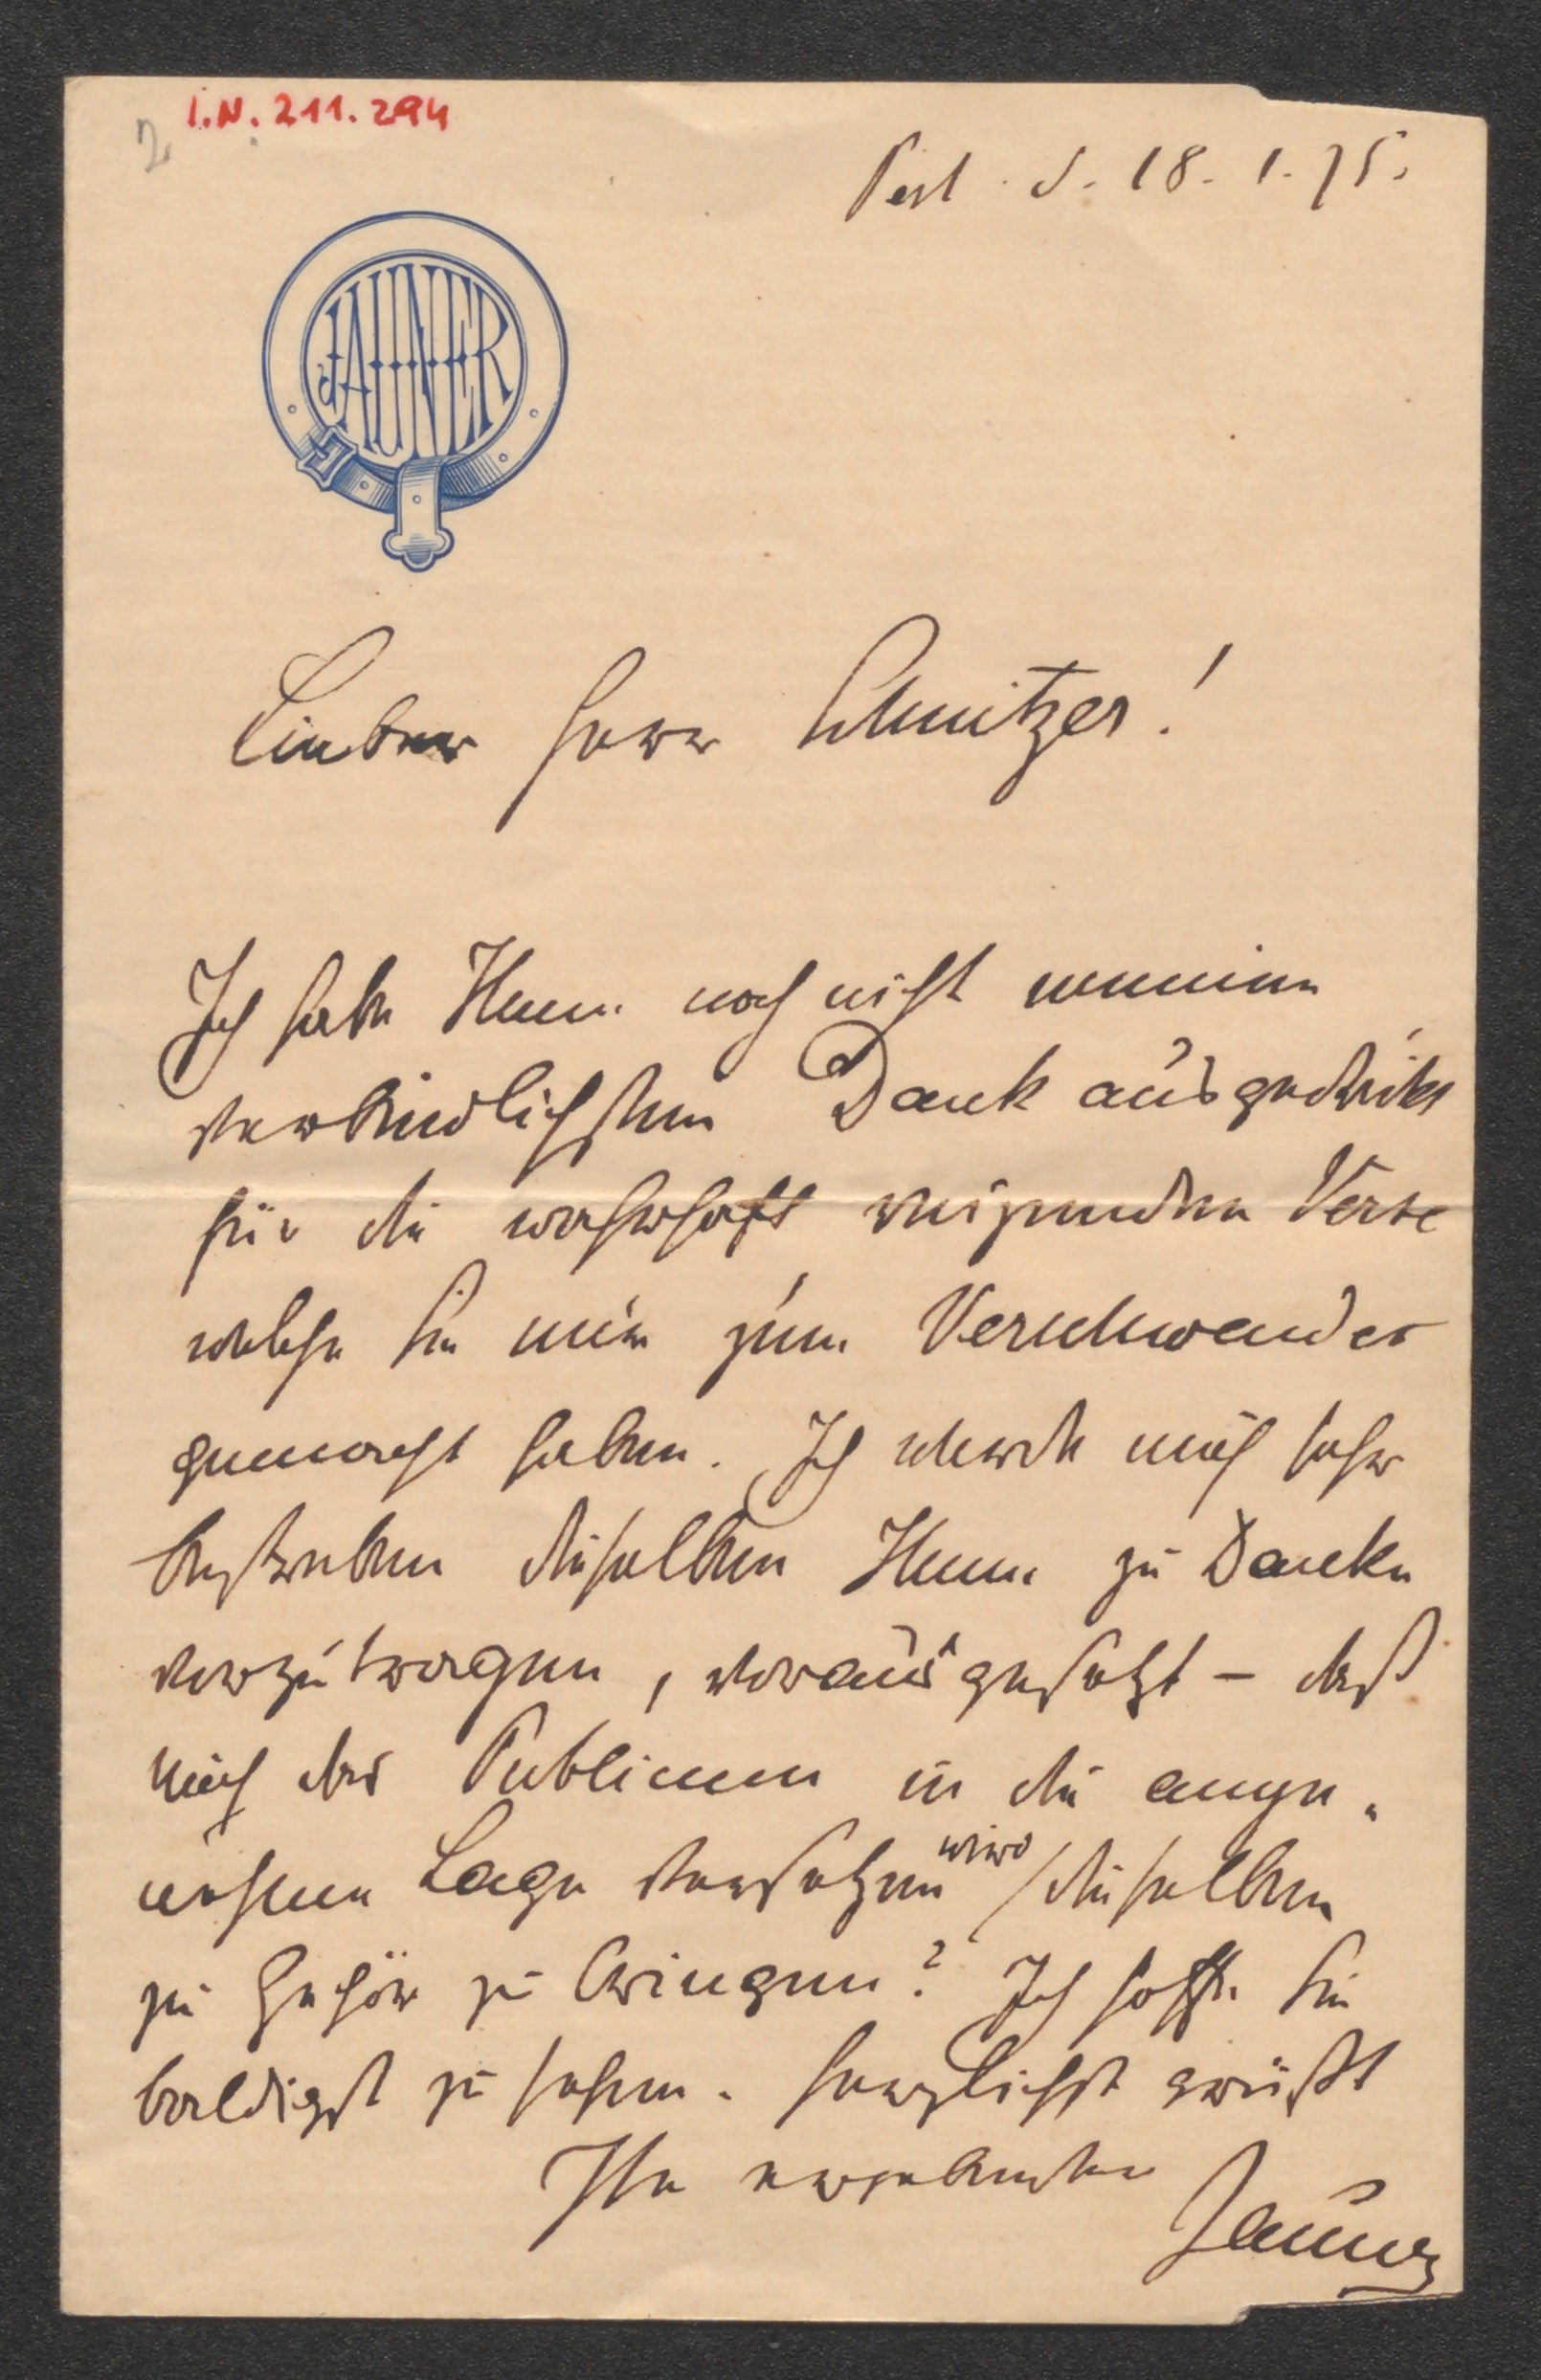 I.N. 211.294
2
Pest d. 18. 1. 75.
JAUNER
Lieber Herr Schnitzer!
Ich habe Ihnen noch nicht meinen
verbindlichsten Dank ausgedrückt
für die wahrhaft reizenden Verse
welche Sie mir zum Verschwender
gemacht haben. Ich werde mich sehr
bestreben dieselben Ihnen zu Danke
vorzutragen, vorausgesetzt – daß
mich das Publicum in die ange„
nehme Lage versetzen wird dieselben
zu Gehör zu bringen? Ich hoffe Sie
baldigst zu sehen. Herzlichst grüßt
Ihr ergebenster
Jauner